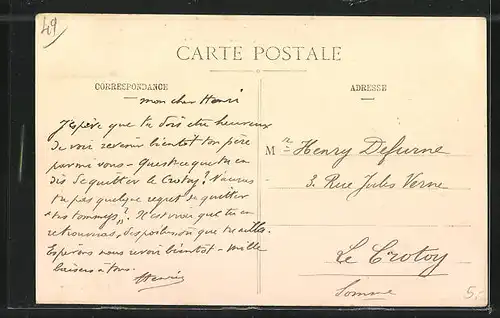 49
CARTE POSTALE
CORRESPONDANCE
ADRESSE
mon cher Henri
J'espère que tu dois être heureux
de voir revenir bientôt ton père
parmi vous - Qu'est ce que tu en
dis de quitter le Crotoy? N'auras
tu pas quelque regret de quitter
"tes tommeys"? Il est vrai que tu en
retrouveras, partout où que tu ailles.
Espérons nous revoir bientôt - Mille
baisers à tous.
M Henry Defurne
3. Rue Jules Verne
Le Crotoy
Somme
5.